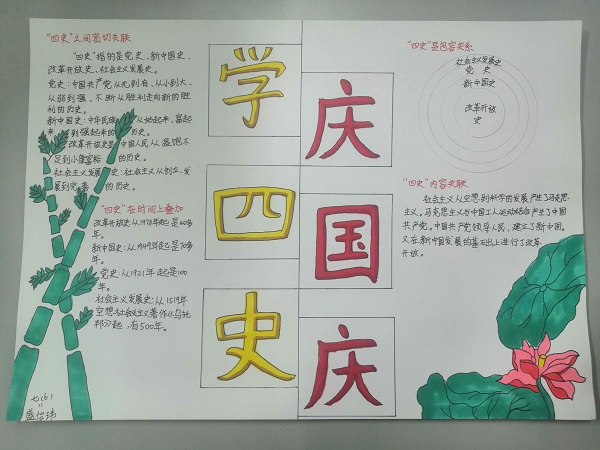 "四史"之间密切关联
"四史"指的是党史、新中国史、
改革开放史、社会主义发展史。
党史:中国共产党从无到有、从小到大、
从弱到强、不断从胜利走向新的胜
利的历史。
新中国史:中华民族从站起来、富起
来到强起来的历史。
改革开放史是中国人民从温饱不
足到小康富裕的历史。
社会主义发展史:社会主义从创立、发
展到完善的历史。
"四史"在时间上叠加
改革开放史从1978年起是40多
年。
新中国史:从1949年起是70多
年。
党史:从1921年起是100
年。
社会主义发展史:从1519年
空想社会主义著作《乌托
邦》起,有500年。
七(6)
学
四
史
庆
国
庆
"四史"是包容关系
社会主义发展史
党史
新中国史
改革开放
史
"四史"内容关联
社会主义从空想到科学的发展产生了马克思
主义。马克思主义与中国工人运动结合产生了中国
共产党。中国共产党领导人民,建立了新中国。
又在新中国发展的基础上进行了改革
开放。